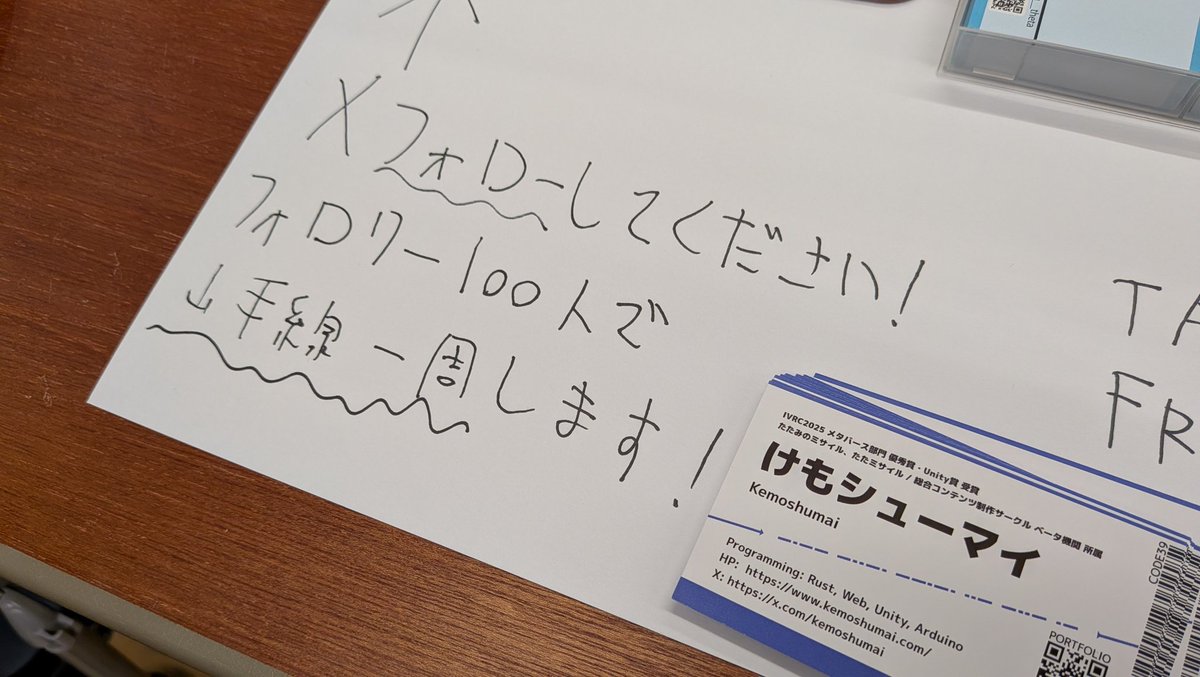 Xフォローしてください!
フォロワー100人で
山手線一周します!
TA
FR
theta
IVRC2025 メタバース部門 優秀賞・Unity賞 受賞
たたみのミサイル、たたミサイル / 総合コンテンツ制作サークル ベータ機関 所属
けもシューマイ
Kemoshumai
Programming: Rust, Web, Unity, Arduino
HP: https://www.kemoshumai.com/
X: https://x.com/kemoshumai
PORTFOLIO
CODE39